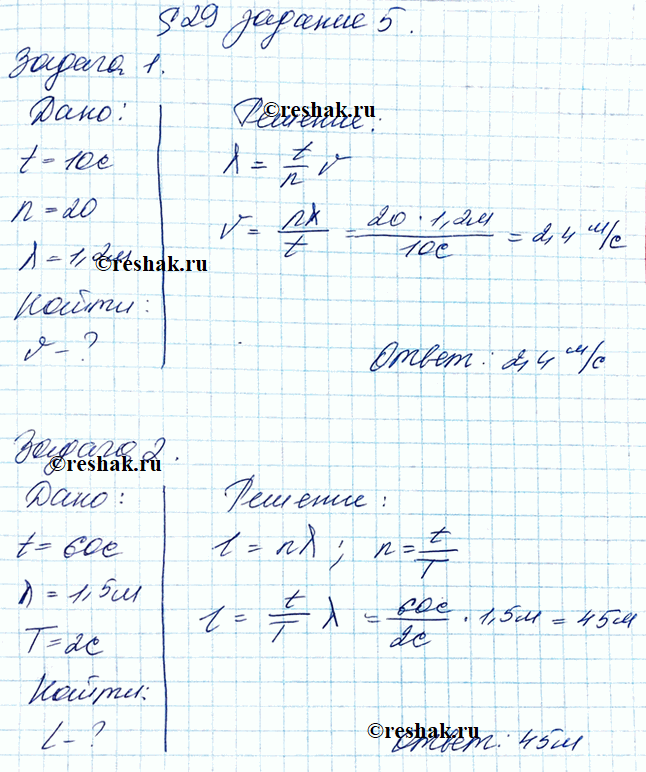 §29 задание 5.
Задача 1.
Дано:
t = 10c
n = 20
λ = 1,2м
Найти:
v - ?
©reshak.ru
Решение:
©reshak.ru
λ = t/n v
v = nλ/t = 20 · 1,2м/10c = 2,4 м/с
Ответ: 2,4 м/с
Задача 2.
©reshak.ru
Дано:
t = 60c
λ = 1,5м
T = 2c
Найти:
l - ?
Решение:
l = nλ; n = t/T
l = t/T λ = 60c/2c · 1,5м = 45м
©reshak.ru
Ответ: 45м